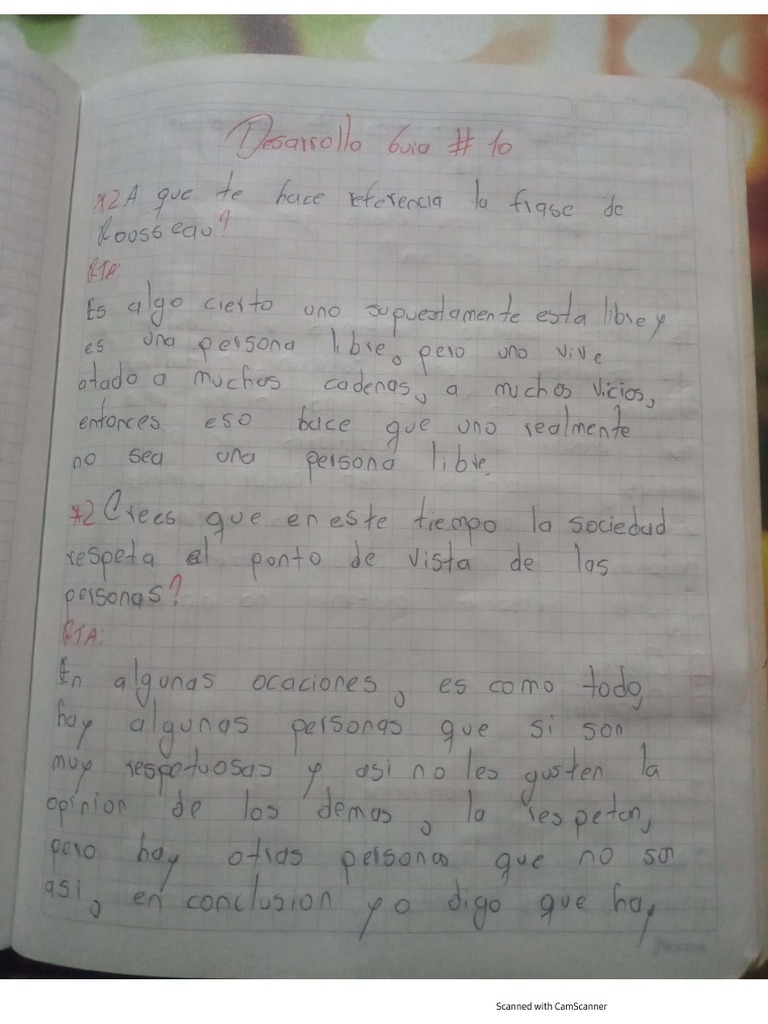 Desarrollo Guia # 10
*2 A que te hace referencia la frase de
Roosseau?
RTA:
Es algo cierto uno supuestamente esta libre y
es una persona libre, pero uno vive
atado a muchas cadenas, a muchos vicios,
entonces eso hace que uno realmente
no sea una persona libre.
*2 Crees que en este tiempo la sociedad
respeta el punto de vista de las
personas?
RTA:
En algunas ocaciones, es como todo,
hay algunas personas que si son
muy respetuosas y asi no les gusten la
opinion de los demas, la respetan,
pero hay otras personas que no son
asi, en conclusion yo digo que hay
Scanned with CamScanner